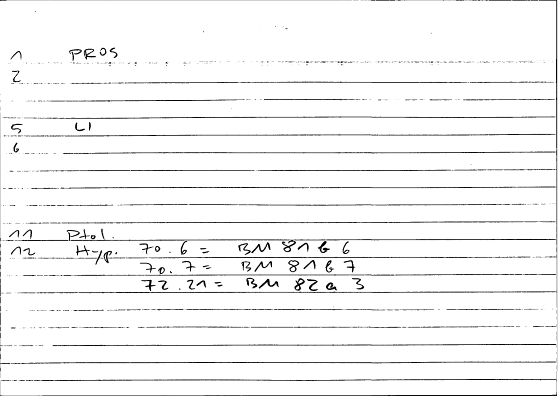 1 PROS
2
5 LI
6
11 Ptol.
12 Hyp. 70.6 = BM 81 b 6
70.7 = BM 81 b 7
72.21 = BM 82 a 3